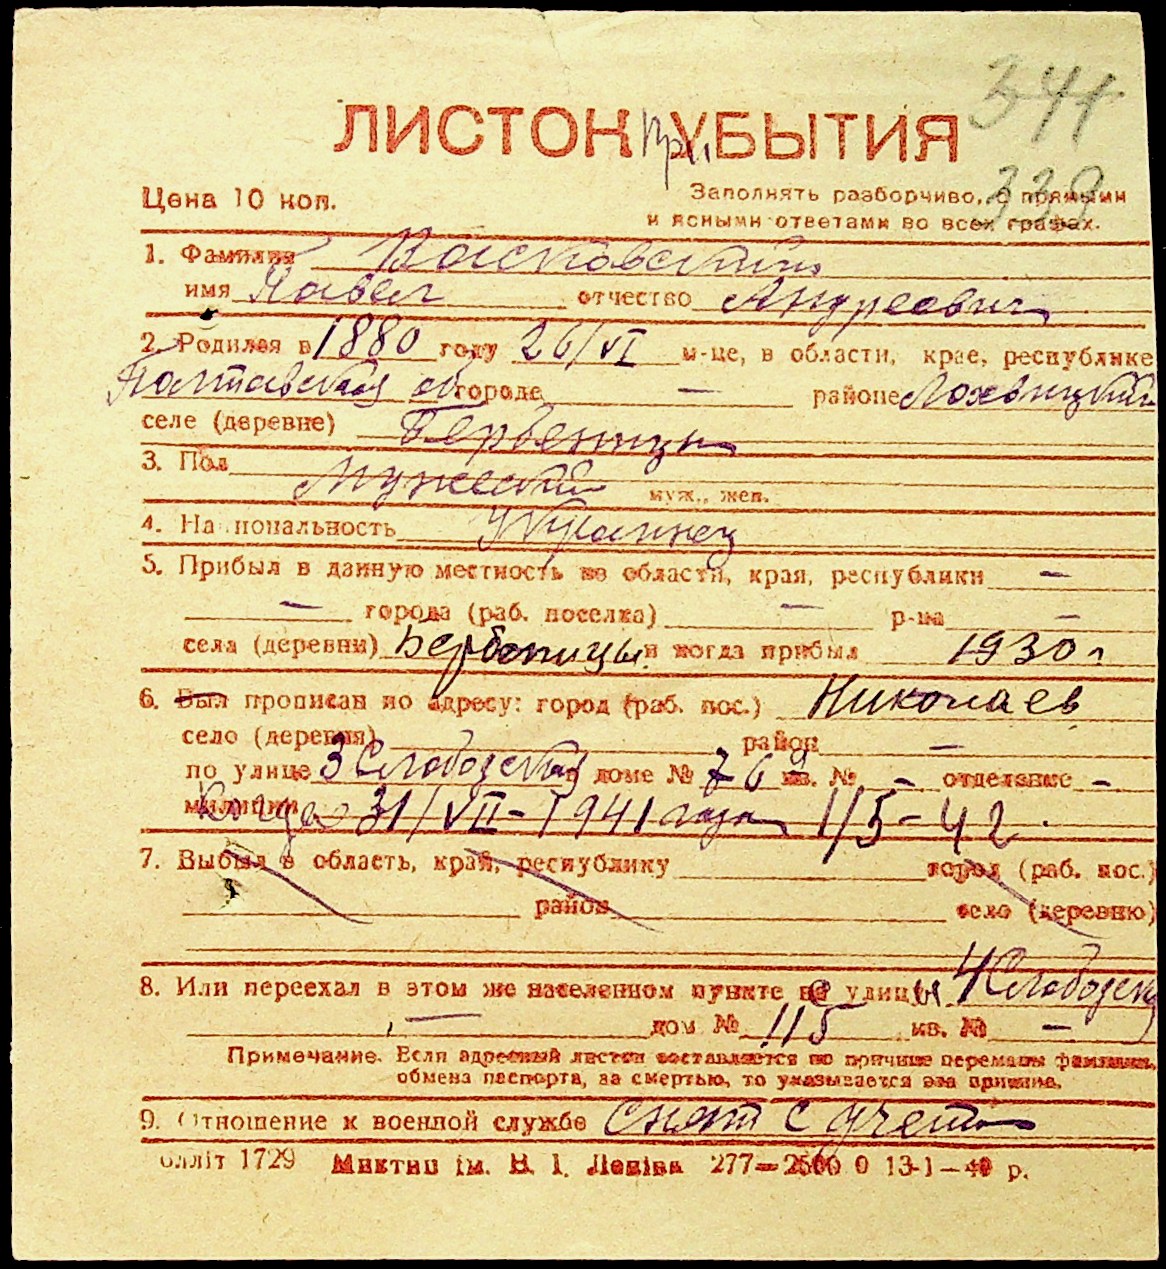 344
ЛИСТОК При УБЫТИЯ
339
Цена 10 коп. Заполнять разборчиво, с прямыми
и ясными ответами во всех графах.
1. Фамилия Васковский
имя Павел отчество Андреевич
2. Родился в 1880 году 26/VI м-це, в области, крае, республике
Полтавской об городе — районе Лохвицкий
селе (деревне)
3. Пол Мужской муж., жен.
4. Национальность Украинец
5. Прибыл в данную местность из области, края, республики —
— города (раб. поселка) — р-на —
села (деревни) и когда прибыл 1930 г
6. Был прописан по адресу: город (раб. пос.) Николаев
село (деревня) район —
по улице 3 Слободская в доме № 76 а кв. № — отделение —
милиции Когда 31/VII-1941 года 1/5-42
7. Выбыл в область, край, республику город (раб. пос.)
район село (деревню)
8. Или переехал в этом же населенном пункте с улицы 4 Слободск
— дом № 115 кв. № —
Примечание. Если адресный листок составляется по причине перемены фамилии,
обмена паспорта, за смертью, то указывается эта причина.
9. Отношение к военной службе Снят с учета
олліт 1729 Миктип ім. В. І. Леніна 277—2500 0 13-1—40 р.